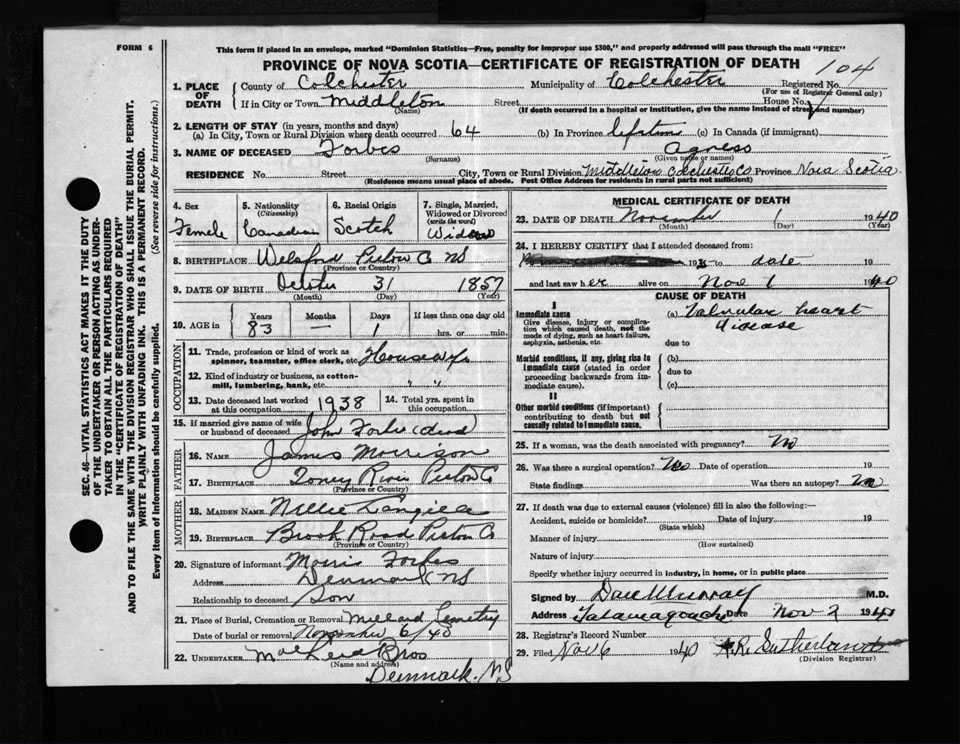 FORM 6
This form if placed in an envelope, marked "Dominion Statistics—Free, penalty for improper use $300," and properly addressed will pass through the mail "FREE"
PROVINCE OF NOVA SCOTIA—CERTIFICATE OF REGISTRATION OF DEATH 104
1. PLACE OF DEATH County of Colchester Municipality of Colchester Registered No.
(For use of Registrar General only)
If in City or Town Middleton Street House No.
(Name) (If death occurred in a hospital or institution, give the name instead of street and number)
2. LENGTH OF STAY (in years, months and days)
(a) In City, Town or Rural Division where death occurred 64 (b) In Province lifetime (c) In Canada (if immigrant)
3. NAME OF DECEASED Forbes Agness
(Surname) (Given name or names)
RESIDENCE No. Street City, Town or Rural Division Middleton Colchester Co Province Nova Scotia
(Residence means usual place of abode. Post Office Address for residents in rural parts not sufficient)
4. Sex Female
5. Nationality (Citizenship) Canadian
6. Racial Origin Scotch
7. Single, Married, Widowed or Divorced (write the word) Widow
8. BIRTHPLACE Welsford Pictou Co NS
(Province or Country)
9. DATE OF BIRTH October 31 1857
(Month) (Day) (Year)
10. AGE in Years Months Days If less than one day old
83 — 1 hrs. or min.
OCCUPATION
11. Trade, profession or kind of work as spinner, teamster, office clerk, etc. Housewife
12. Kind of industry or business, as cotton-mill, lumbering, bank, etc. " "
13. Date deceased last worked at this occupation 1938 14. Total yrs. spent in this occupation
15. If married give name of wife or husband of deceased John Forbes (dead)
FATHER
16. NAME James Morrison
17. BIRTHPLACE Toney River Pictou Co
(Province or Country)
MOTHER
18. MAIDEN NAME Nellie Langille
19. BIRTHPLACE Brook Road Pictou Co
(Province or Country)
20. Signature of informant Morris Forbes
Address Denmark NS
Relationship to deceased Son
21. Place of Burial, Cremation or Removal Millard Cemetery
Date of burial or removal November 6/40
22. UNDERTAKER MacLeod Bros
(Name and address)
Denmark. NS
MEDICAL CERTIFICATE OF DEATH
23. DATE OF DEATH November 1 1940
(Month) (Day) (Year)
24. I HEREBY CERTIFY that I attended deceased from:
19 to date 19
and last saw her alive on Nov 1 1940
CAUSE OF DEATH
I
Immediate cause
Give disease, injury or complication which caused death, not the mode of dying, such as heart failure, asphyxia, asthenia, etc.
(a) Valvular heart disease
due to
Morbid conditions, if any, giving rise to immediate cause (stated in order proceeding backwards from immediate cause).
(b)
due to
(c)
II
Other morbid conditions (if important) contributing to death but not causally related to immediate cause.
25. If a woman, was the death associated with pregnancy? No
26. Was there a surgical operation? No Date of operation 19
State findings Was there an autopsy? No
27. If death was due to external causes (violence) fill in also the following:—
Accident, suicide or homicide? Date of injury 19
(State which)
Manner of injury
(How sustained)
Nature of injury
Specify whether injury occurred in industry, in home, or in public place
Signed by Dan Murray M.D.
Address Tatamagouche Date Nov 2 1940
28. Registrar's Record Number
29. Filed Nov 6 1940 R. Sutherland
(Division Registrar)
SEC. 46—VITAL STATISTICS ACT MAKES IT THE DUTY
OF THE UNDERTAKER OR PERSON ACTING AS UNDER-
TAKER TO OBTAIN ALL THE PARTICULARS REQUIRED
IN THE "CERTIFICATE OF REGISTRATION OF DEATH"
AND TO FILE THE SAME WITH THE DIVISION REGISTRAR WHO SHALL ISSUE THE BURIAL PERMIT.
WRITE PLAINLY WITH UNFADING INK. THIS IS A PERMANENT RECORD.
Every item of Information should be carefully supplied. (See reverse side for instructions.)